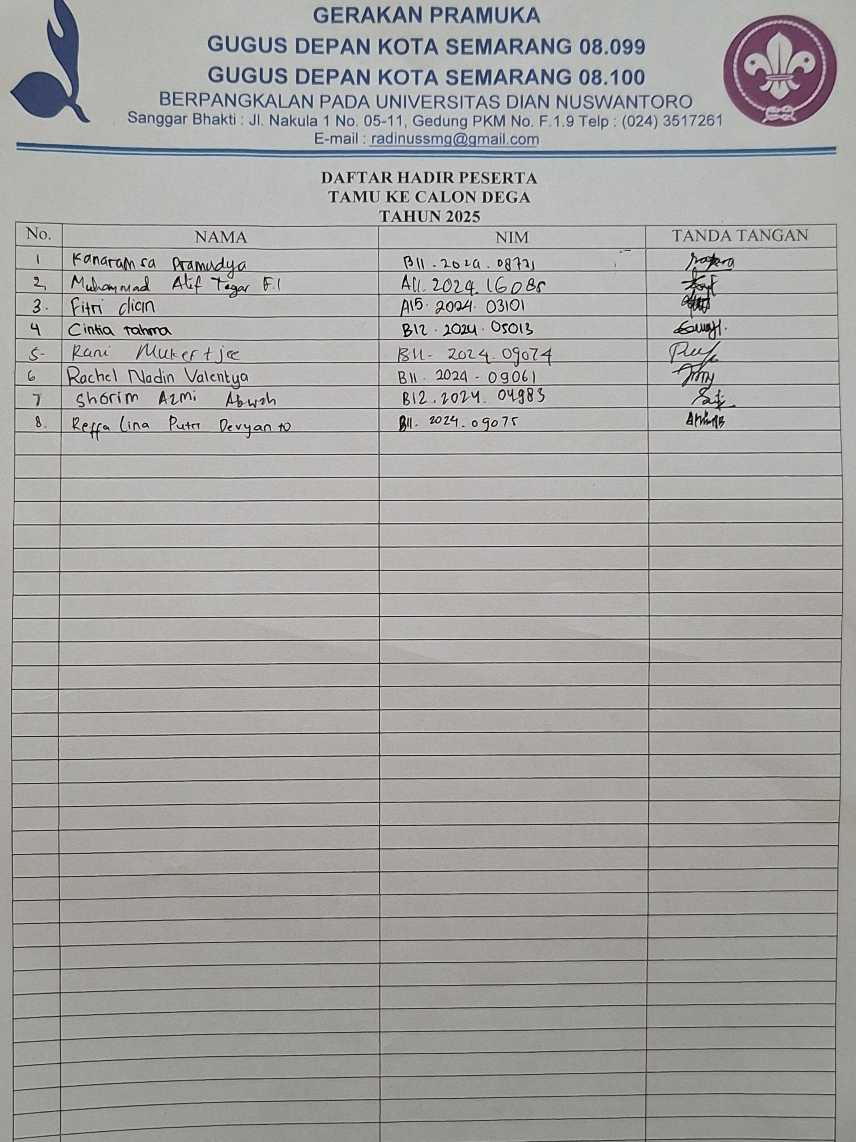 GERAKAN PRAMUKA
GUGUS DEPAN KOTA SEMARANG 08.099
GUGUS DEPAN KOTA SEMARANG 08.100
BERPANGKALAN PADA UNIVERSITAS DIAN NUSWANTORO
Sanggar Bhakti : Jl. Nakula 1 No. 05-11, Gedung PKM No. F.1.9 Telp : (024) 3517261
E-mail : radinussmg@gmail.com
DAFTAR HADIR PESERTA
TAMU KE CALON DEGA
TAHUN 2025
No. NAMA NIM TANDA TANGAN
1 Kanaramsa Pramudya B11.2024.08721
2, Muhammad Alif Tegar F.I A11.2024.16085
3. Fitri dian A15.2024.03101
4 Cintia rahma B12.2024.05013
5- Rani Mukertjee B11-2024.09074
6 Rachel Nadin Valentya B11.2024-09061
7 Shorim Azmi B12.2024.04983
8. Reffa Lina Putri Devyanto B11.2024.09075